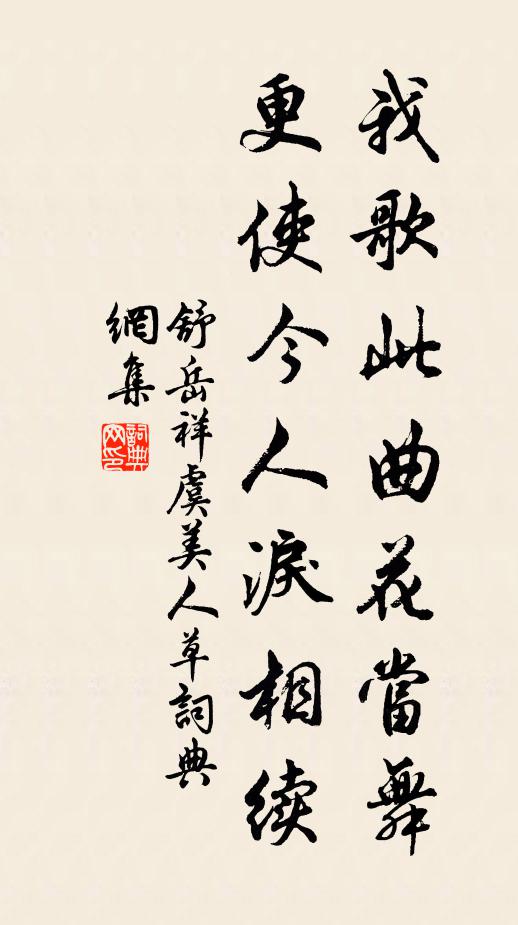 我歌此曲花當舞
更使今人淚相续
舒岳祥虞美人草詞典
網集
詞典
网印